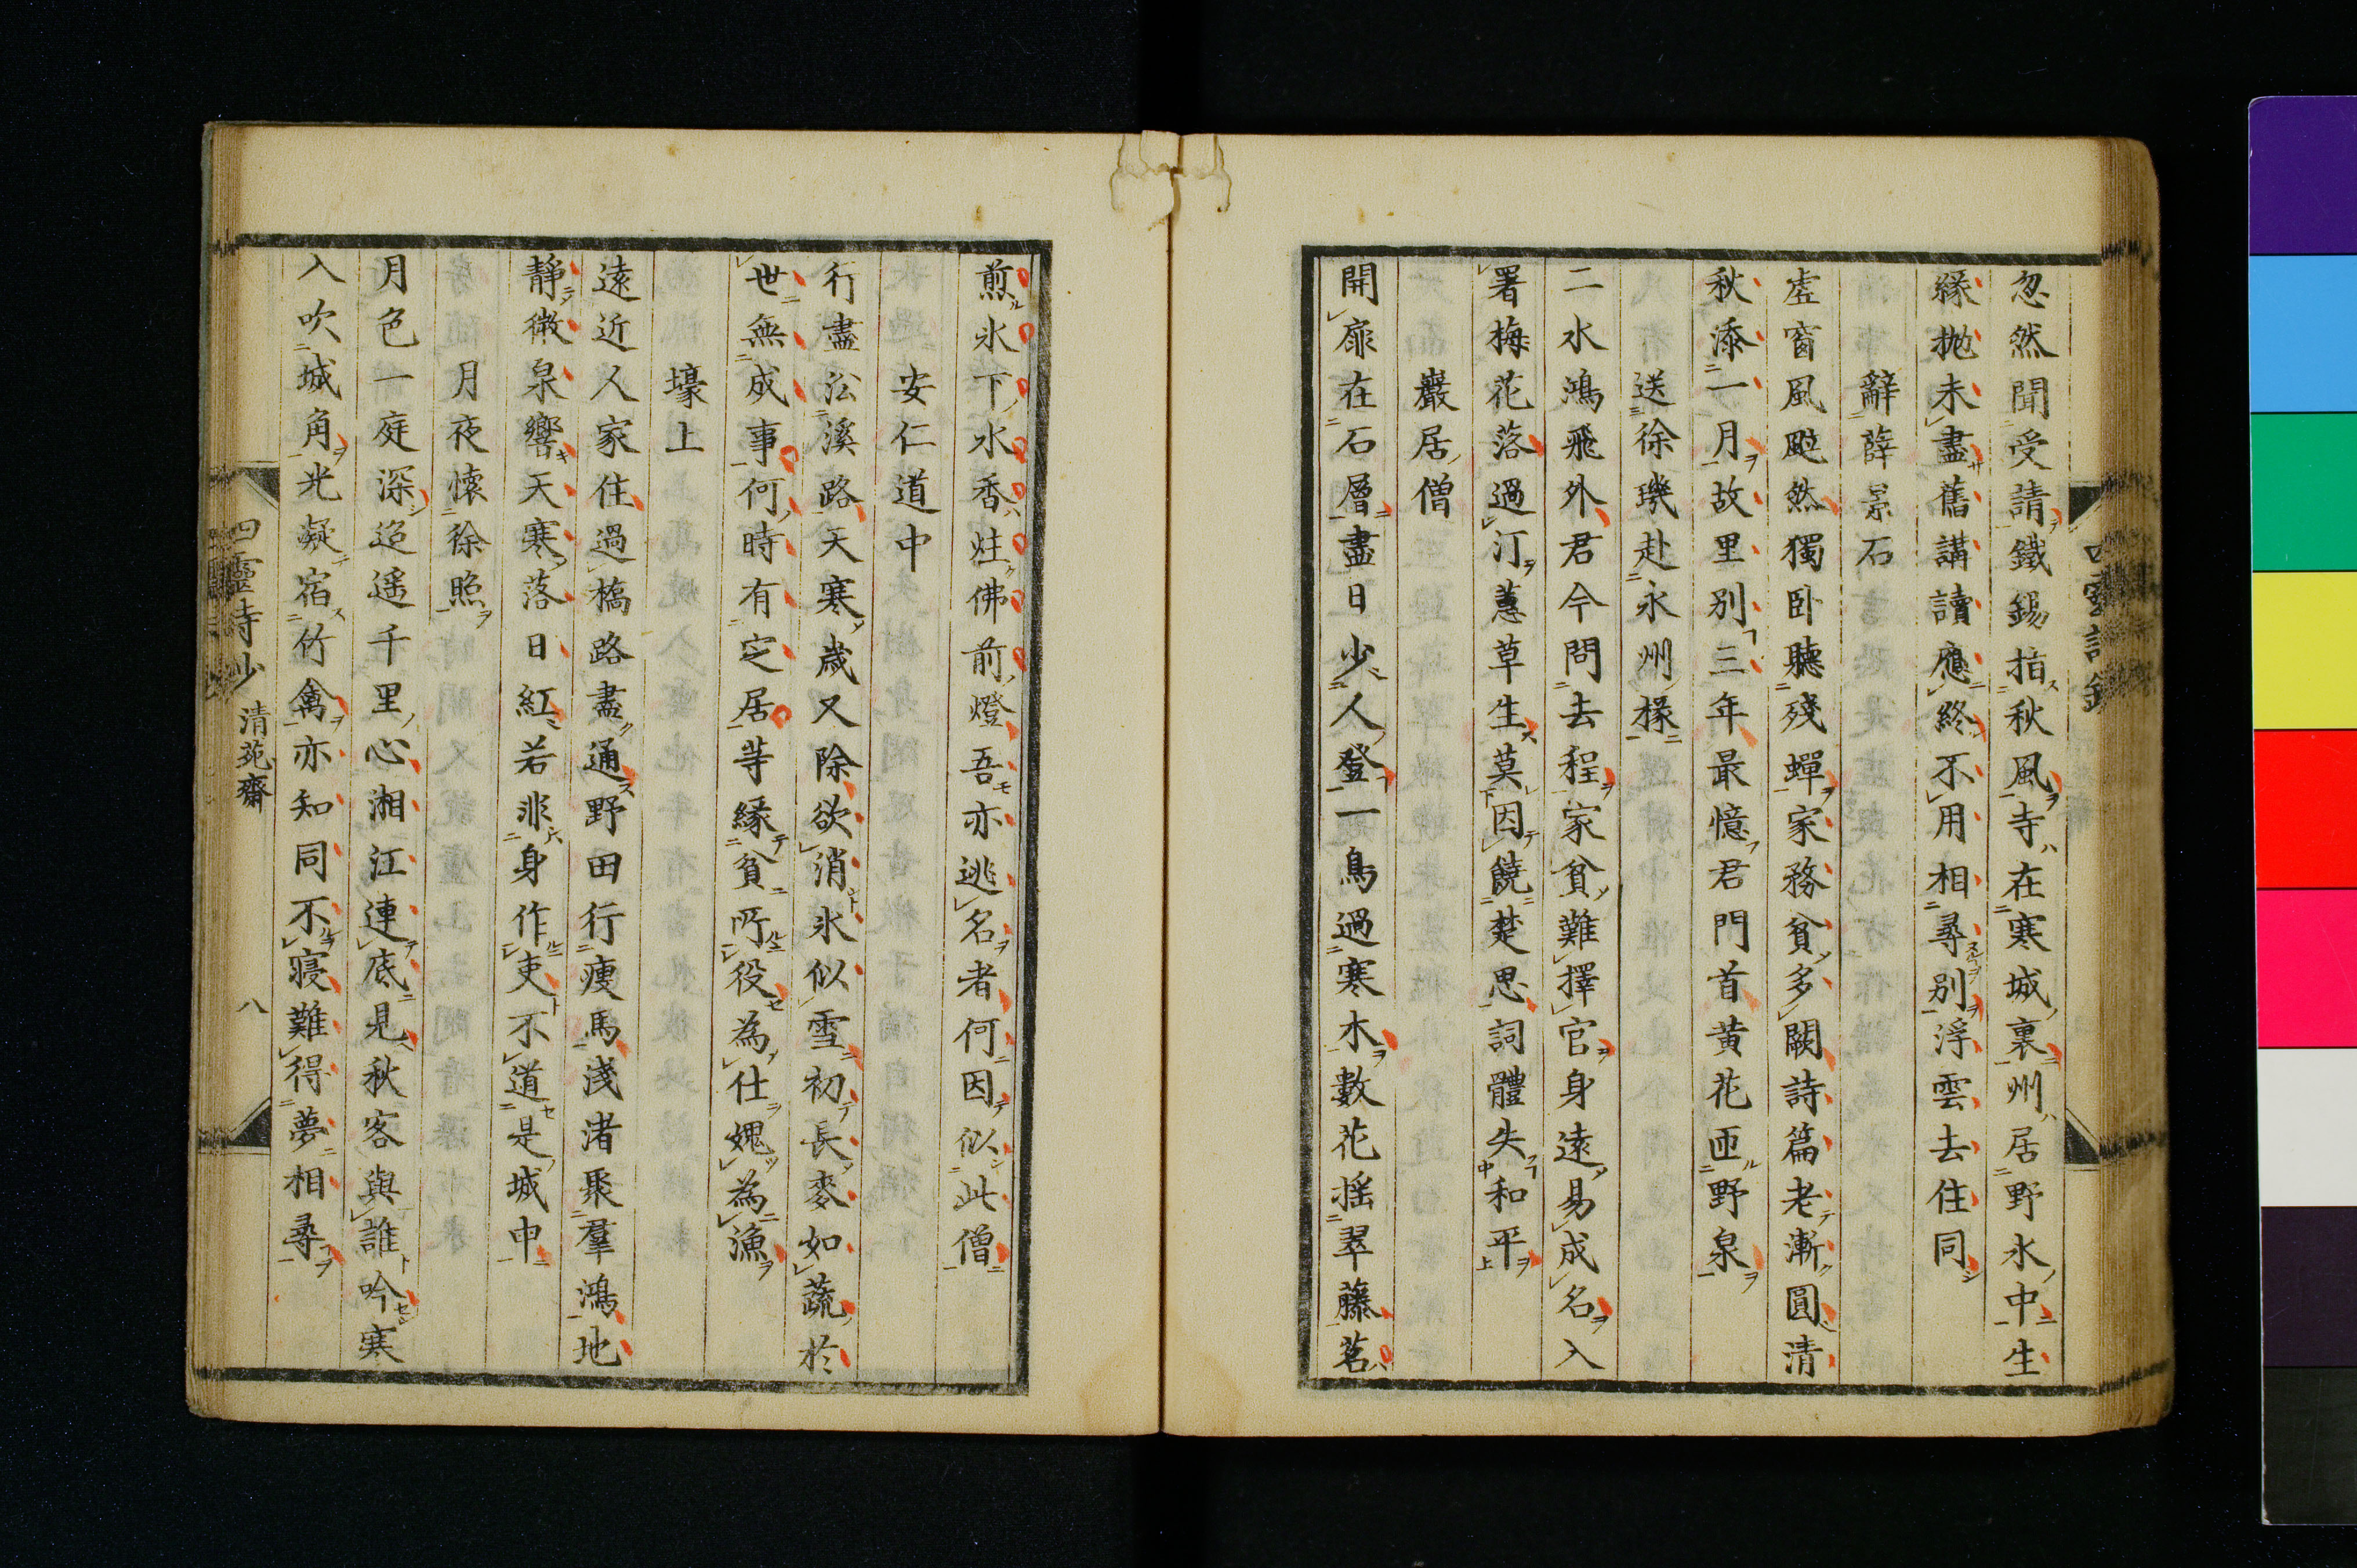 忽然聞受請鐵錫指秋風寺在寒城裏州居野水中生
緣抛未盡舊講讀應終不用相尋別浮雲去住同
辭薛景石
虛窗風颭然獨卧聽殘蟬家務貧多闕詩篇老漸圓清
秋添一月故里別三年最憶君門首黄花匝野泉
送徐璣赴永州掾
二水鴻飛外君今問去程家貧難擇官身遠易成名入
署梅花落過汀蕙草生莫因饒楚思詞體失和平
巖居僧
開扉在石層盡日少人登一鳥過寒木數花揺翠藤茗
煎氷下水香炷佛前燈吾亦逃名者何因似此僧
安仁道中
行盡㳂溪路天寒歲又除欲消氷似雪初長麥如蔬於
世無成事何時有定居等緣貧所役為仕媿為漁
壕上
遠近人家住過橋路盡通野田行瘦馬淺渚聚羣鴻地
靜微泉響天寒落日紅若非身作吏不道是城中
月夜懷徐照
月色一庭深迢遥千里心湘江連底見秋客與誰吟寒
入吹城角光凝宿竹禽亦知同不寢難得夢相尋
清苑齋
八